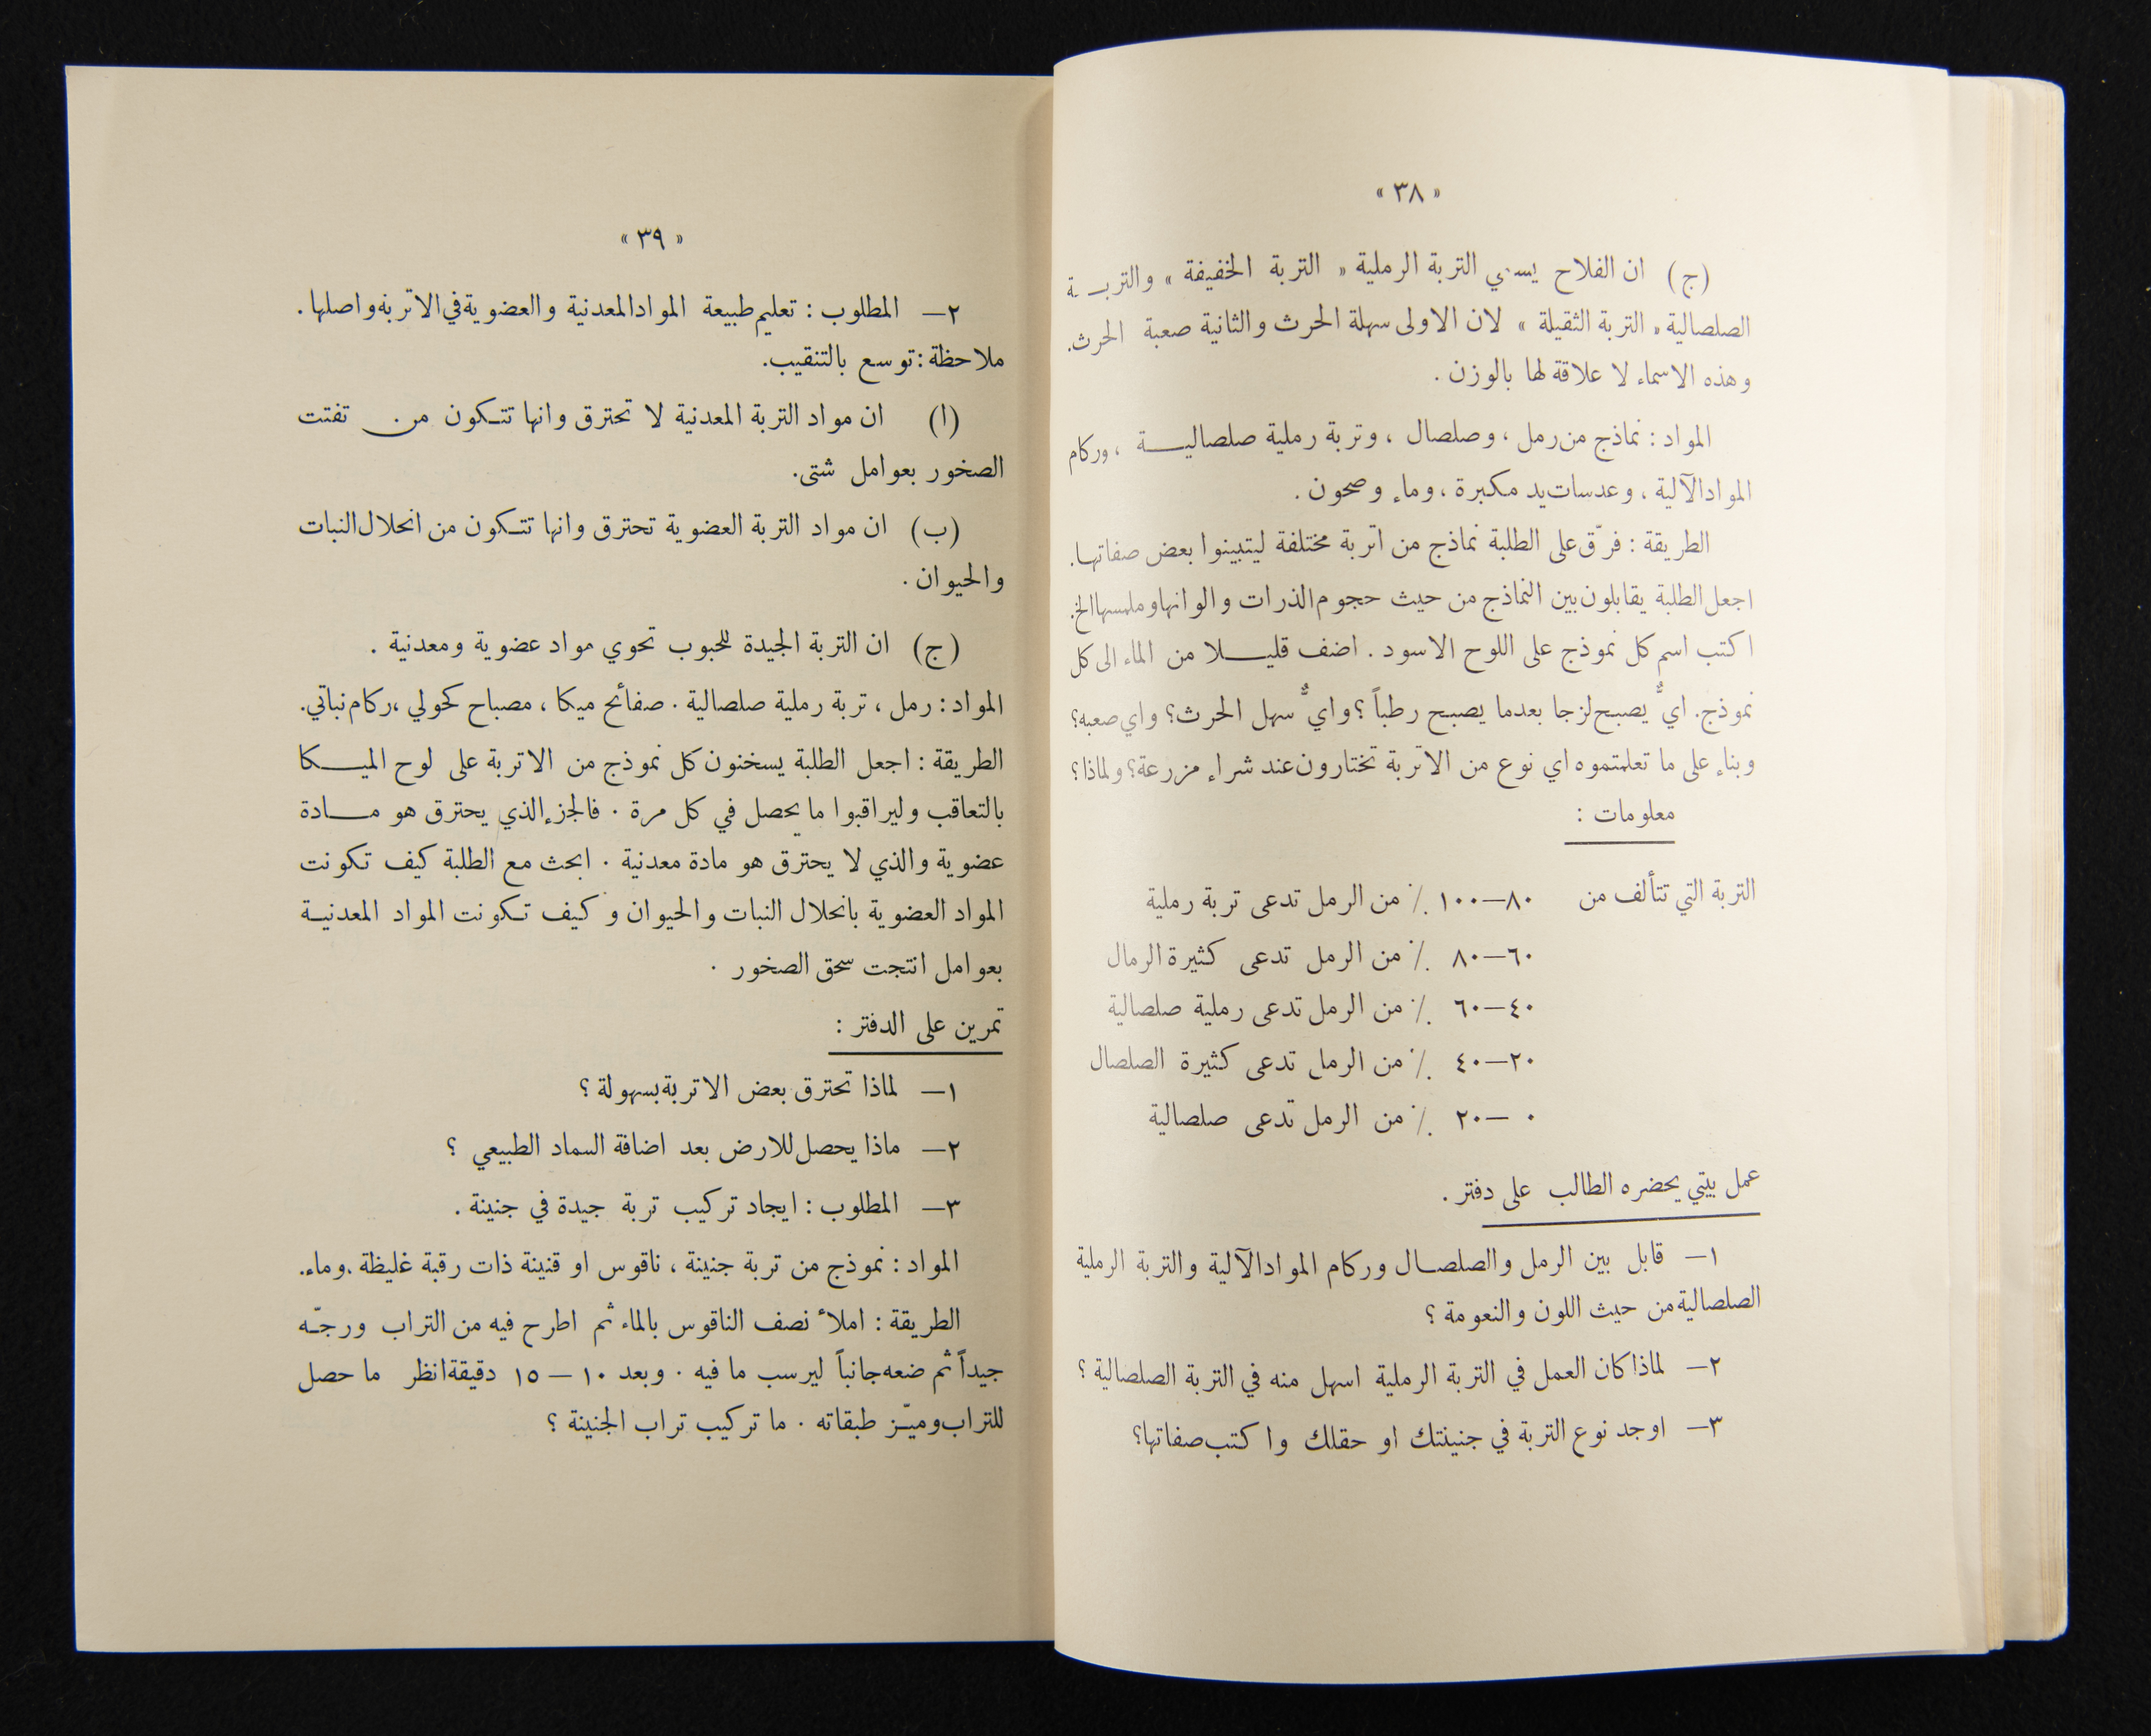 « ٣٨ »
(ج) ان الفلاح يسمي التربة الرملية « التربة الخفيفة » والتربـة
الصلصالية « التربة الثقيلة » لان الاولى سهلة الحرث والثانية صعبة الحرث.
وهذه الاسماء لا علاقة لها بالوزن .
المواد : نماذج من رمل ، وصلصال ، وتربة رملية صلصاليـــة ، وركام
المواد الآلية ، وعدسات يد مكبرة ، وماء وصحون .
الطريقة : فرّق على الطلبة نماذج من اتربة مختلفة ليتبينوا بعض صفاتها.
اجعل الطلبة يقابلون بين النماذج من حيث حجوم الذرات والوانها وملمسها الخ.
اكتب اسم كل نموذج على اللوح الاسود . اضف قليـــلا من الماء الى كل
نموذج. ايٌّ يصبح لزجا بعدما يصبح رطباً ؟ وايٌّ سهل الحرث؟ واي صعبه؟
وبناء على ما تعلمتموه اي نوع من الاتربة تختارون عند شراء مزرعة؟ ولماذا ؟
معلومات :
التربة التي تتألف من ٨٠—١٠٠ ٪ من الرمل تدعى تربة رملية
٦٠—٨٠ ٪ من الرمل تدعى كثيرة الرمال
٤٠—٦٠ ٪ من الرمل تدعى رملية صلصالية
٢٠—٤٠ ٪ من الرمل تدعى كثيرة الصلصال
٠ —٢٠ ٪ من الرمل تدعى صلصالية
عمل بيتي يحضره الطالب على دفتر .
١— قابل بين الرمل والصلصـال وركام المواد الآلية والتربة الرملية
الصلصالية من حيث اللون والنعومة ؟
٢— لماذا كان العمل في التربة الرملية اسهل منه في التربة الصلصالية ؟
٣— اوجد نوع التربة في جنينتك او حقلك واكتب صفاتها؟
« ٣٩ »
٢— المطلوب : تعليم طبيعة المواد المعدنية والعضوية في الاتربه واصلها .
ملاحظة : توسع بالتنقيب.
(ا) ان مواد التربة المعدنية لا تحترق وانها تتـكون من تفتت
الصخور بعوامل شتى.
(ب) ان مواد التربة العضوية تحترق وانها تتـكون من انحلال النبات
والحيوان .
(ج) ان التربة الجيدة للحبوب تحوي مواد عضوية ومعدنية .
المواد : رمل ، تربة رملية صلصالية . صفائح ميكا ، مصباح كحولي ، ركام نباتي.
الطريقة : اجعل الطلبة يسخنون كل نموذج من الاتربة على لوح الميـــكا
بالتعاقب وليراقبوا ما يحصل في كل مرة . فالجزء الذي يحترق هو مـــادة
عضوية والذي لا يحترق هو مادة معدنية . ابحث مع الطلبة كيف تكونت
المواد العضوية بانحلال النبات والحيوان وكيف تـكونت المواد المعدنيـة
بعوامل انتجت سحق الصخور .
تمرين على الدفتر :
١— لماذا تحترق بعض الاتربة بسهولة ؟
٢— ماذا يحصل للارض بعد اضافة السماد الطبيعي ؟
٣— المطلوب : ايجاد تركيب تربة جيدة في جنينة .
المواد : نموذج من تربة جنينة ، ناقوس او قنينة ذات رقبة غليظة ، وماء.
الطريقة : املأ نصف الناقوس بالماء ثم اطرح فيه من التراب ورجّـه
جيداً ثم ضعه جانباً ليرسب ما فيه . وبعد ١٠ — ١٥ دقيقة انظر ما حصل
للتراب وميّـز طبقاته . ما تركيب تراب الجنينة ؟